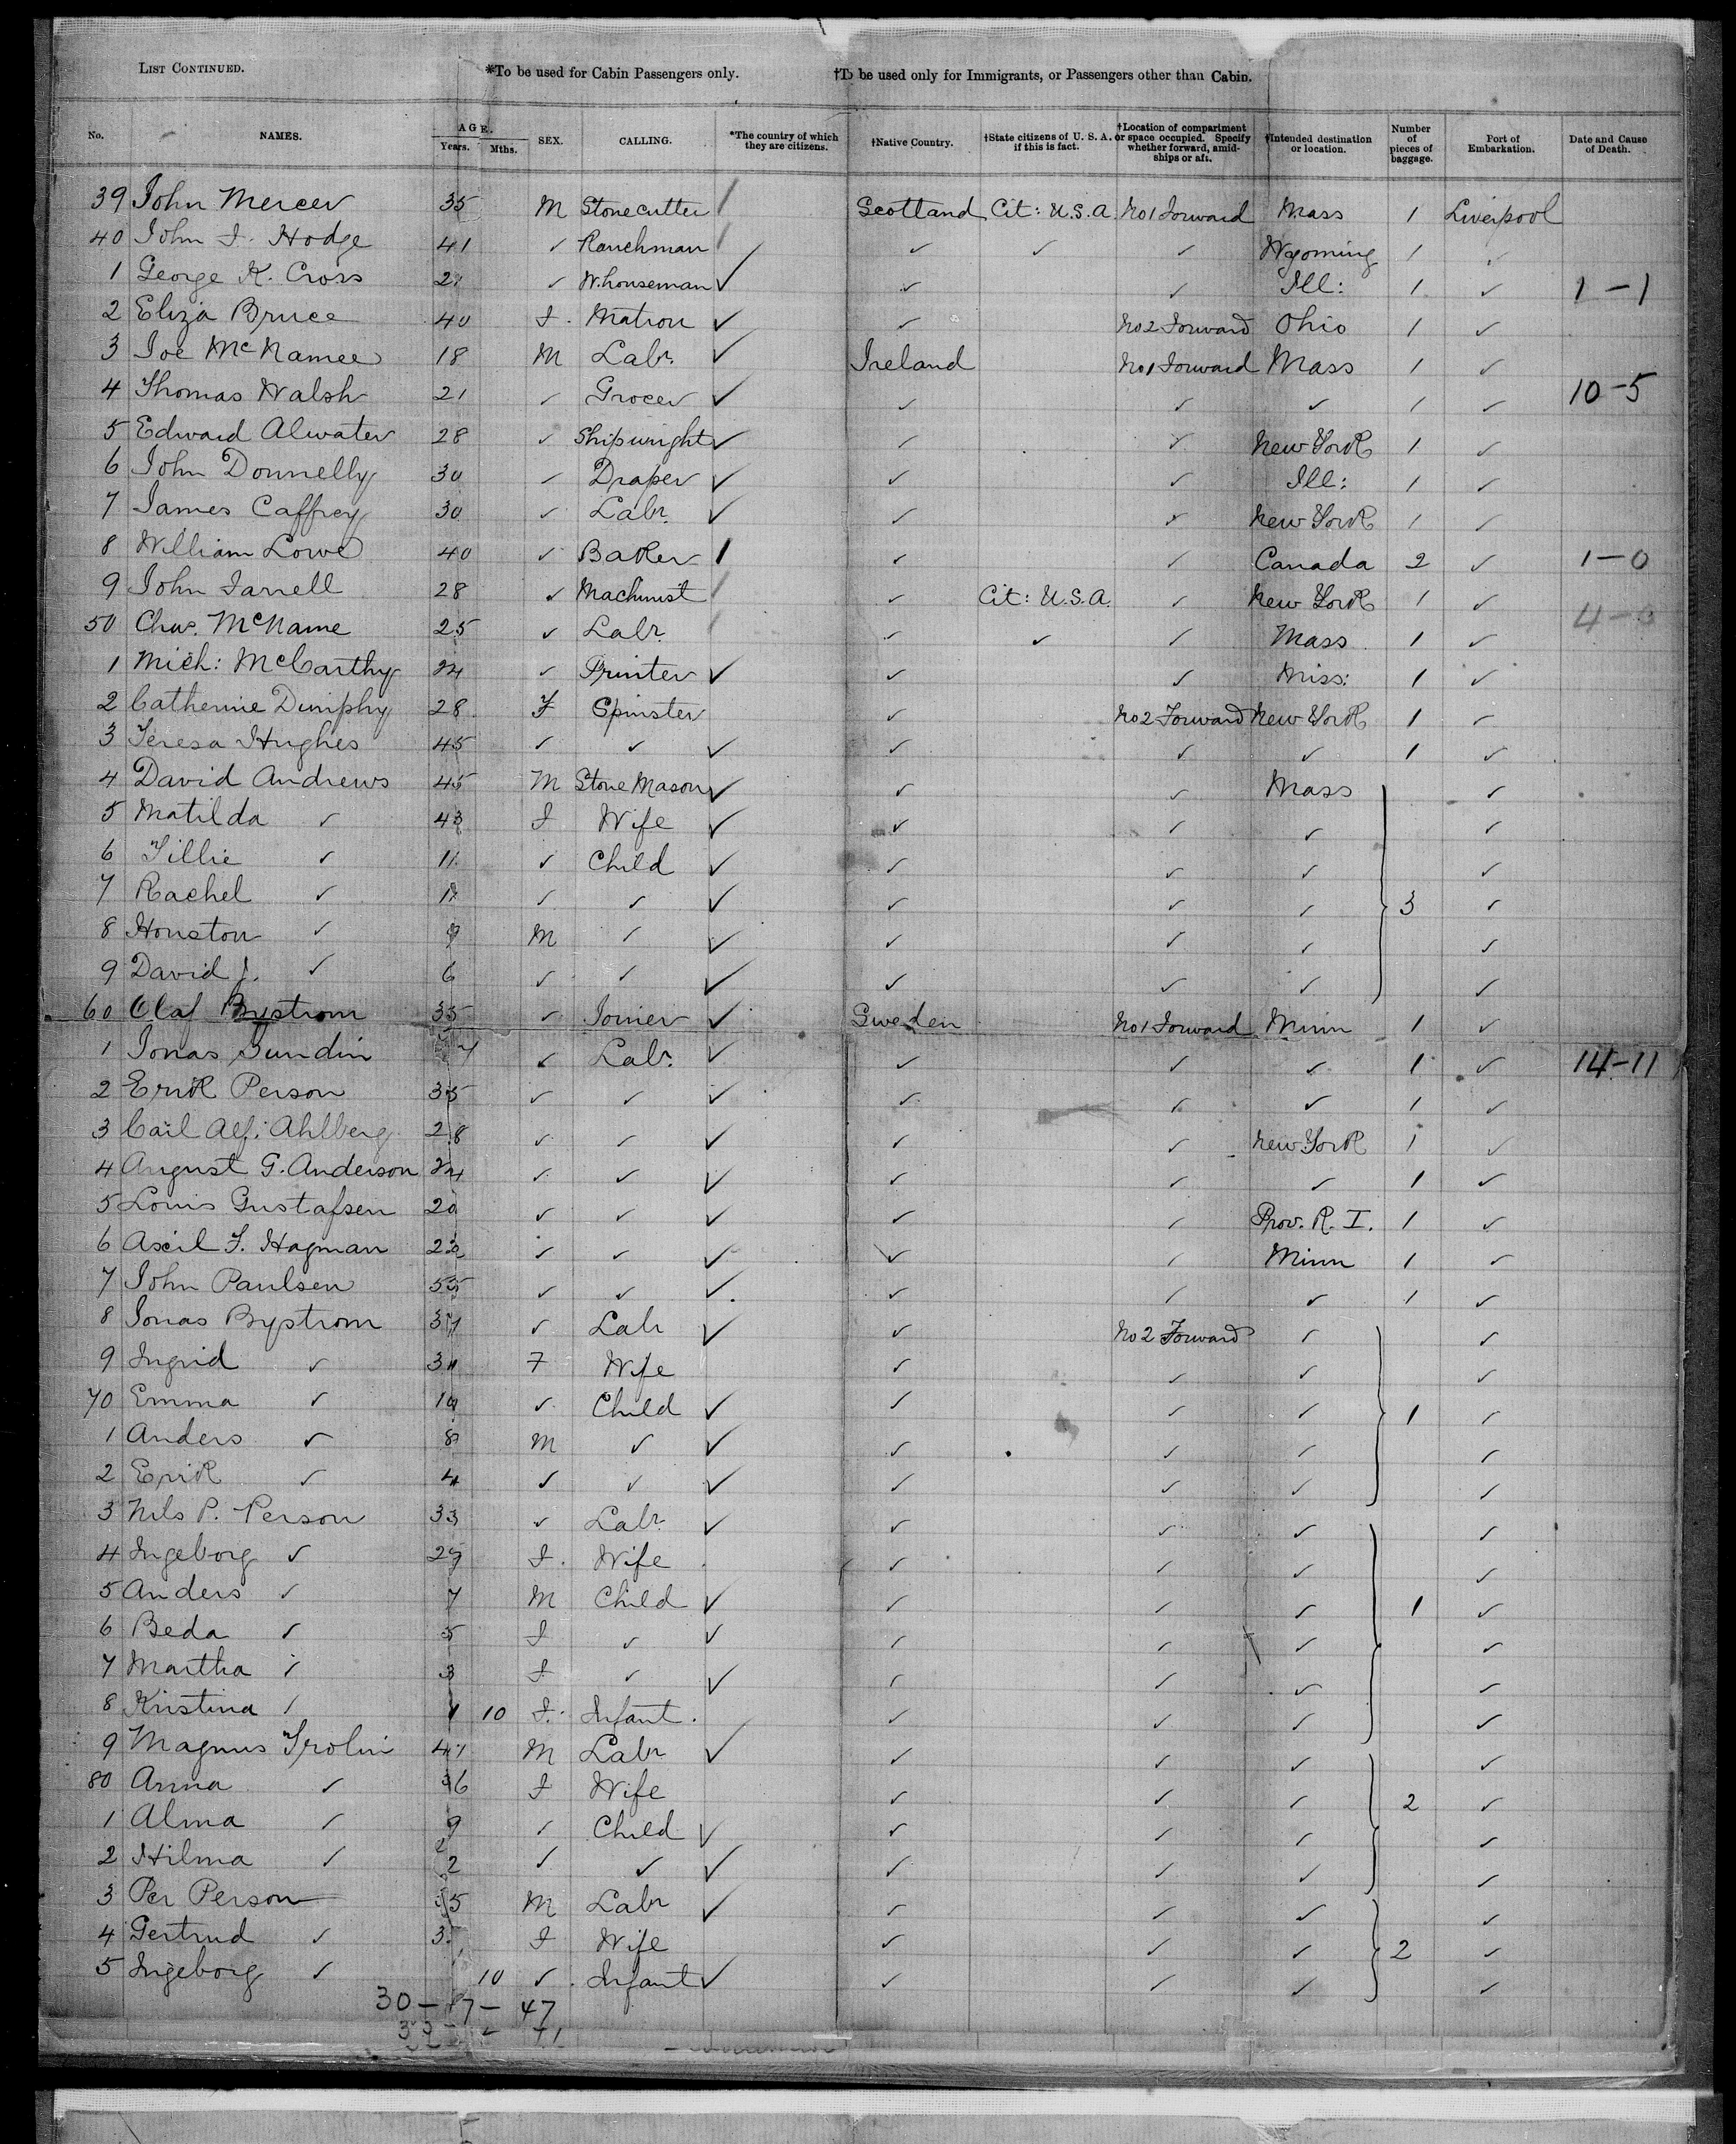 LIST CONTINUED. *To be used for Cabin Passengers only. †To be used only for Immigrants, or Passengers other than Cabin.
No. NAMES. AGE. Years. Mths. SEX. CALLING. *The country of which they are citizens. †Native Country. †State citizens of U. S. A. if this is fact. †Location of compartment or space occupied. Specify whether forward, amidships or aft. †Intended destination or location. Number of pieces of baggage. Port of Embarkation. Date and Cause of Death.
39 John Mercer 35 M Stonecutter / Scotland Cit: U.S.A. No 1 Forward Mass 1 Liverpool
40 John F. Hodge 41 ✓ Ranchman / ✓ ✓ ✓ Wyoming 1 ✓
1 George K. Cross ✓ W.houseman ✓ ✓ ✓ Ill: 1 ✓ 1-1
2 Eliza Bruce 40 F. Matron ✓ ✓ No 2 Forward Ohio 1 ✓
3 Joe McNamee 18 M Labr. ✓ Ireland No 1 Forward Mass 1 ✓
4 Thomas Walsh 21 ✓ Grocer ✓ ✓ ✓ ✓ 1 ✓ 10-5
5 Edward Alwater 28 ✓ Shipwright ✓ ✓ ✓ New York 1 ✓
6 John Donnelly 30 ✓ Draper ✓ ✓ ✓ Ill: 1 ✓
7 James Caffrey 30 ✓ Labr. ✓ ✓ ✓ New York 1 ✓
8 William Lowe 40 ✓ Baker / ✓ ✓ Canada 2 ✓ 1-0
9 John Farrell 28 ✓ Machinist / ✓ Cit: U.S.A. ✓ New York 1 ✓
50 Chas. McName 25 ✓ Labr. / ✓ ✓ ✓ Mass 1 ✓
1 Mich: McCarthy 24 ✓ Printer ✓ ✓ ✓ Miss: 1 ✓
2 Catherine Dunphy 28 F Spinster ✓ No 2 Forward New York 1 ✓
3 Teresa Hughes 45 ✓ ✓ ✓ ✓ ✓ ✓ 1 ✓
4 David Andrews 45 M Stone Mason ✓ ✓ ✓ Mass ✓
5 Matilda ✓ 43 F Wife ✓ ✓ ✓ ✓ ✓
6 Tillie ✓ 11 ✓ Child ✓ ✓ ✓ ✓ ✓
7 Rachel ✓ ✓ ✓ ✓ ✓ ✓ ✓ 3 ✓
8 Houston ✓ 9 M ✓ ✓ ✓ ✓ ✓ ✓
9 David J. ✓ 6 ✓ ✓ ✓ ✓ ✓ ✓ ✓
60 Olaf Bystrom 35 ✓ Joiner ✓ Sweden No 1 Forward Minn 1 ✓
1 Jonas Sundin ✓ Labr. ✓ ✓ ✓ ✓ 1 ✓ 14-11
2 Erik Person 35 ✓ ✓ ✓ ✓ ✓ ✓ 1 ✓
3 Carl Alf: Ahlberg 28 ✓ ✓ ✓ ✓ ✓ New York 1 ✓
4 August G. Anderson 24 ✓ ✓ ✓ ✓ ✓ ✓ 1 ✓
5 Louis Gustafsen 20 ✓ ✓ ✓ ✓ ✓ Prov. R. I. 1 ✓
6 Axil F. Hagman 22 ✓ ✓ ✓ ✓ ✓ Minn 1 ✓
7 John Paulsen 55 ✓ ✓ ✓ ✓ ✓ ✓ 1 ✓
8 Jonas Bystrom 37 ✓ Labr ✓ ✓ No 2 Forward ✓ ✓
9 Ingrid ✓ F Wife ✓ ✓ ✓ ✓
70 Emma ✓ 10 ✓ Child ✓ ✓ ✓ ✓ 1 ✓
1 Anders ✓ 8 M ✓ ✓ ✓ ✓ ✓ ✓
2 Erik ✓ 4 ✓ ✓ ✓ ✓ ✓ ✓ ✓
3 Nils P. Person 33 ✓ Labr. ✓ ✓ ✓ ✓ ✓
4 Ingeborg ✓ 29 F. Wife ✓ ✓ ✓ ✓
5 Anders ✓ 7 M Child ✓ ✓ ✓ ✓ 1 ✓
6 Beda ✓ 5 F ✓ ✓ ✓ ✓ ✓ ✓
7 Martha ✓ 3 F ✓ ✓ ✓ ✓ ✓ ✓
8 Kristina ✓ 10 F. Infant. ✓ ✓ ✓ ✓
9 Magnus Trolin 47 M Labr ✓ ✓ ✓ ✓ ✓
80 Anna ✓ 36 F Wife ✓ ✓ ✓ 2 ✓
1 Alma ✓ 9 ✓ Child ✓ ✓ ✓ ✓ ✓
2 Hilma ✓ 2 ✓ ✓ ✓ ✓ ✓ ✓ ✓
3 Per Person 35 M Labr ✓ ✓ ✓ ✓ ✓
4 Gertrud ✓ F Wife ✓ ✓ ✓ 2 ✓
5 Ingeborg ✓ 10 ✓ Infant ✓ ✓ ✓ ✓ ✓
30 – 17 – 47